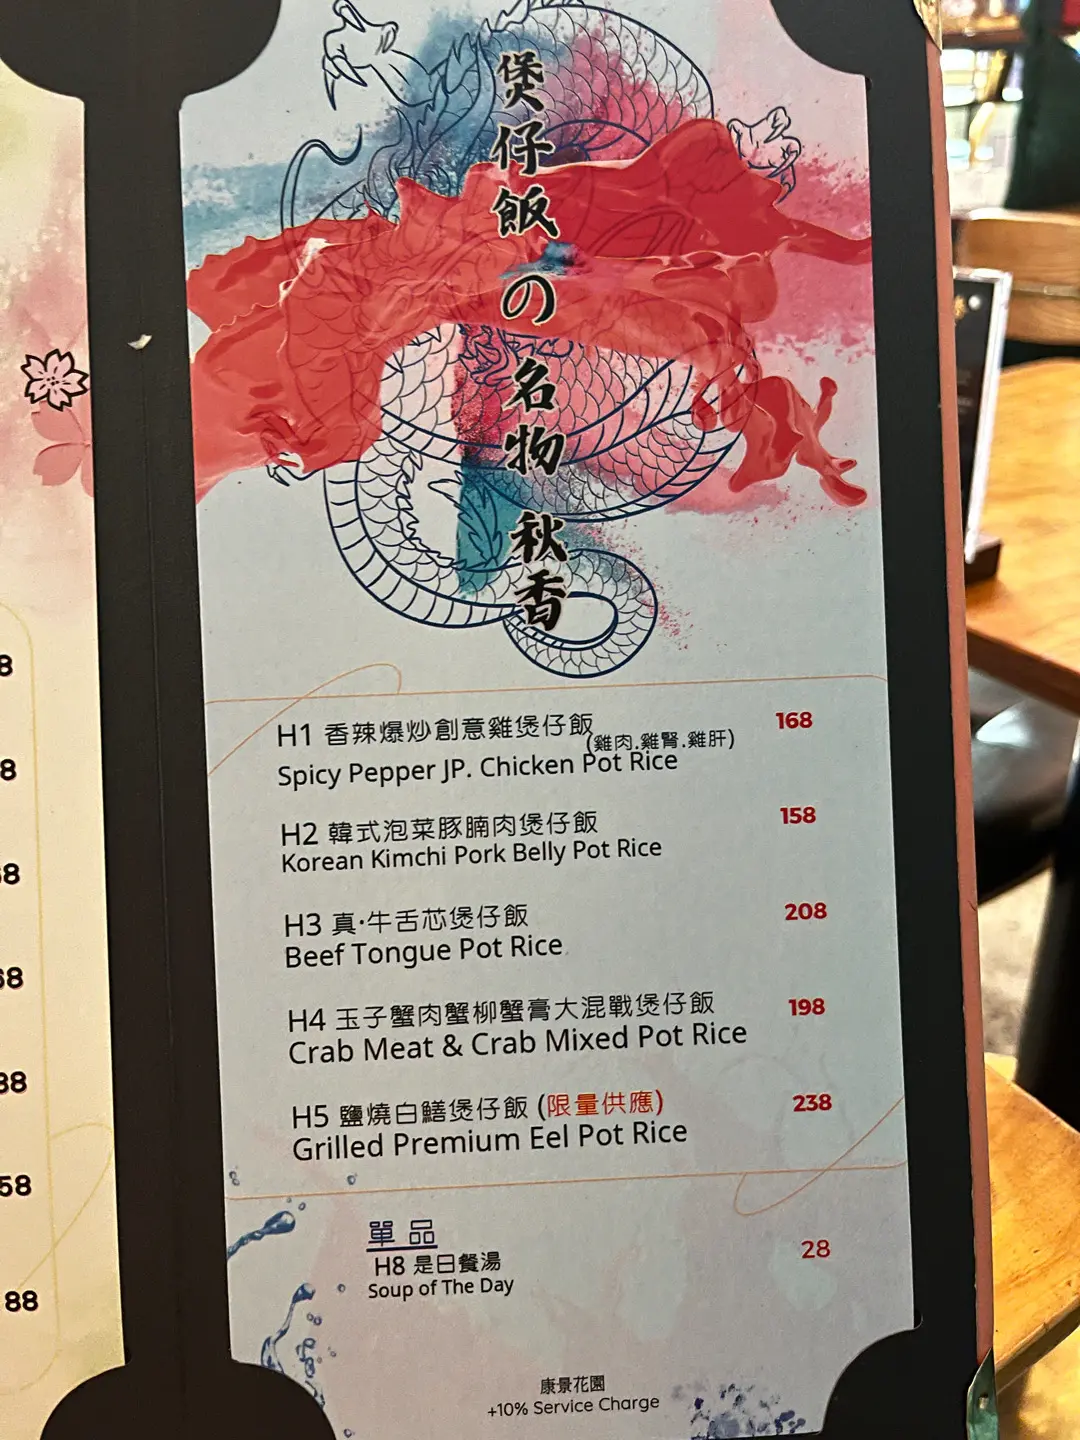 煲仔飯の名物 秋香
H1 香辣爆炒創意雞煲仔飯
(雞肉.雞腎.雞肝)
168
Spicy Pepper JP. Chicken Pot Rice
H2 韓式泡菜豚腩肉煲仔飯
158
Korean Kimchi Pork Belly Pot Rice
H3 真·牛舌芯煲仔飯
208
Beef Tongue Pot Rice
H4 玉子蟹肉蟹柳蟹膏大混戰煲仔飯
198
Crab Meat & Crab Mixed Pot Rice
H5 鹽燒白鱔煲仔飯 (限量供應)
238
Grilled Premium Eel Pot Rice
單品
H8 是日餐湯
28
Soup of The Day
康景花園
+10% Service Charge
8
8
68
88
58
88